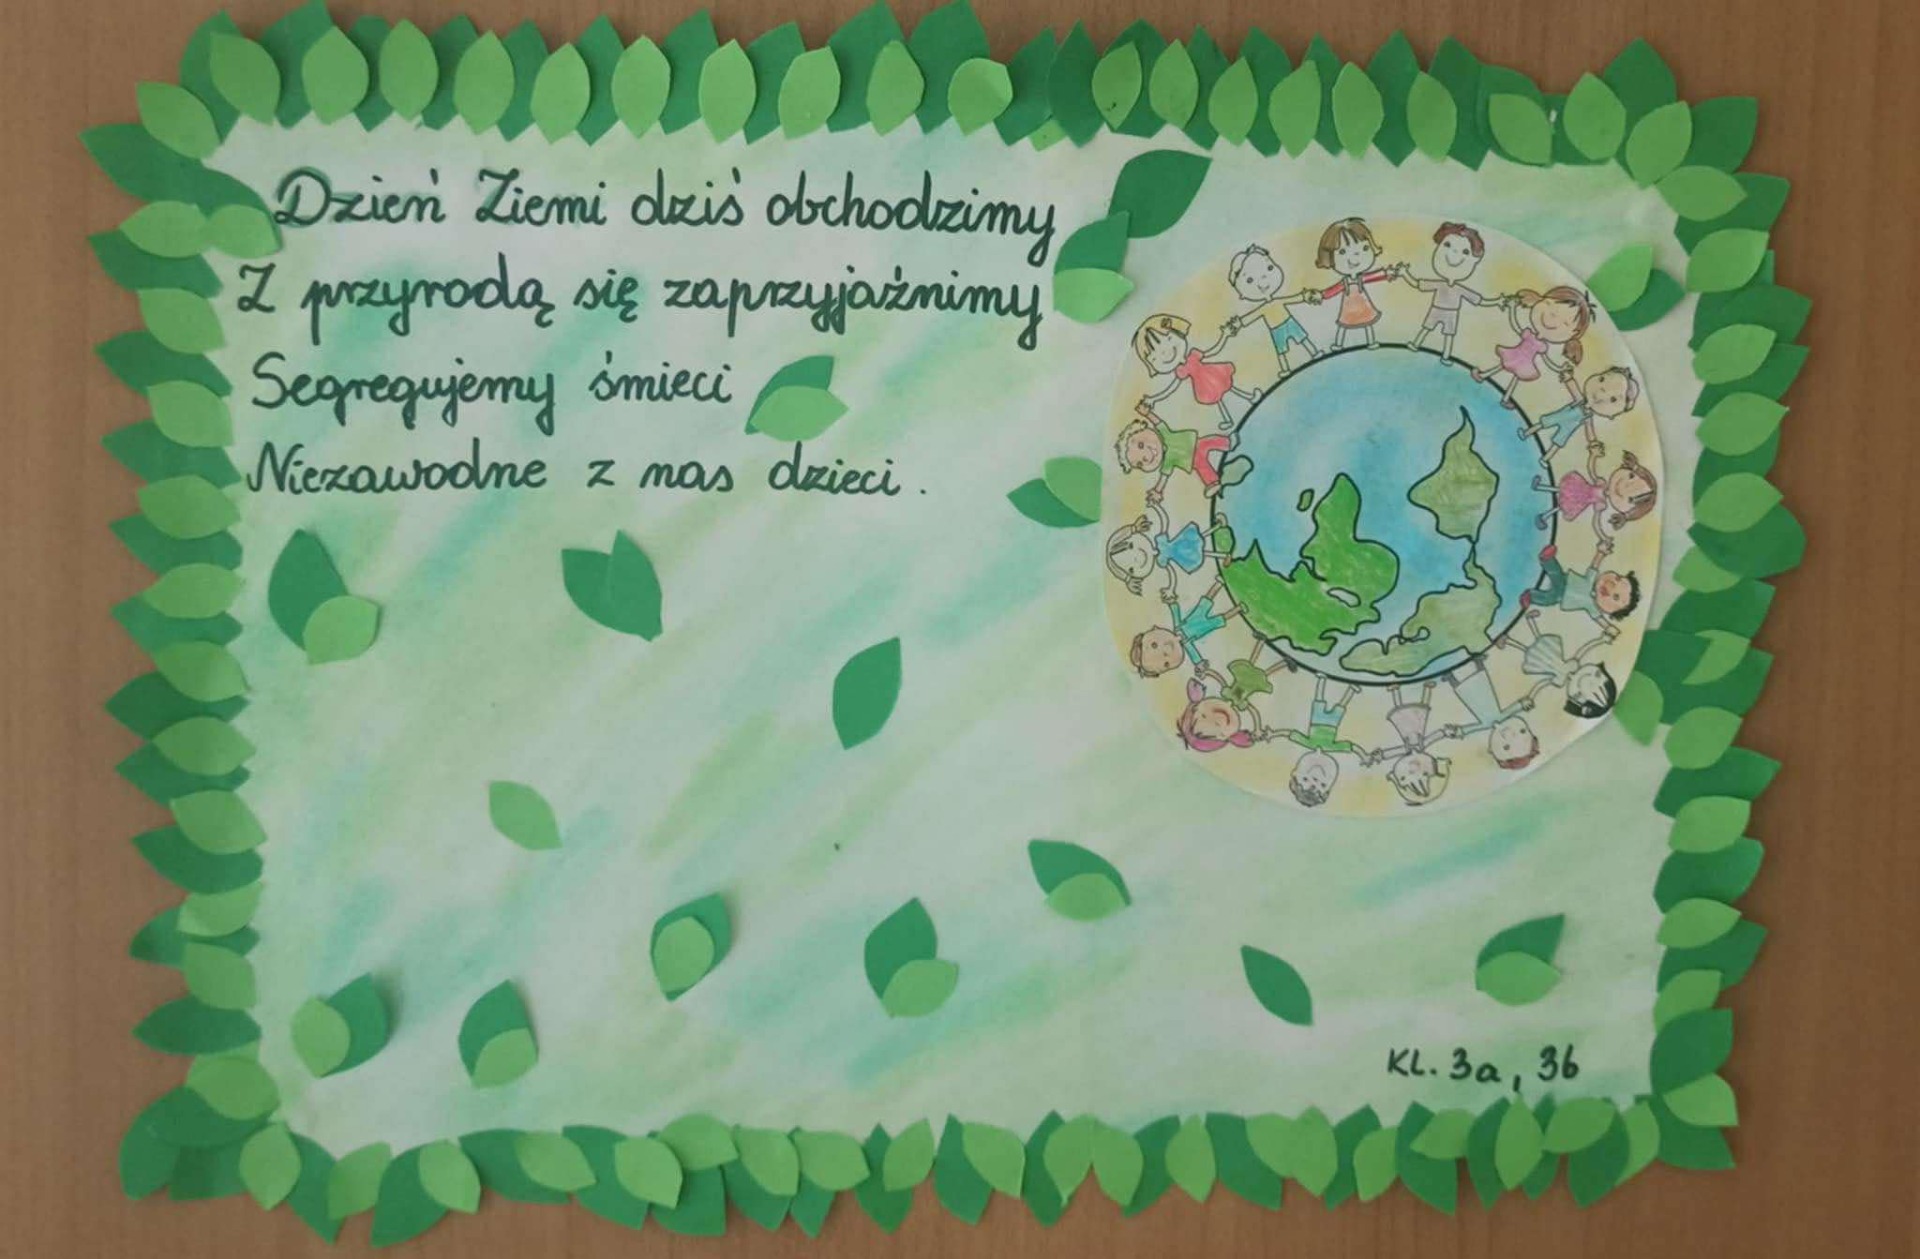 Dzień Ziemi dziś obchodzimy
Z przyrodą się zaprzyjaźnimy
Segregujemy śmieci
Niezawodne z nas dzieci.
KL. 3a, 3b